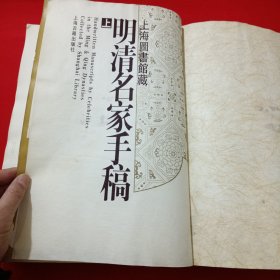 上海圖書館藏
明清名家手稿
上
Handwritten Manuscripts by Celebrities
in the Ming & Qing Dynasties
Collected by Shanghai Library
上海古籍出版社